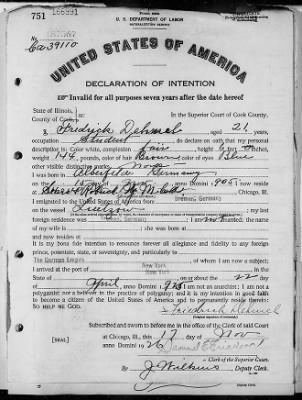 751
U. S. DEPARTMENT OF LABOR
NATURALIZATION SERVICE
No.
Ca 39110
UNITED STATES OF AMERICA
DECLARATION OF INTENTION
Invalid for all purposes seven years after the date hereof
State of Illinois,
In the Superior Court of Cook County.
County of Cook,
I, Fredrick Dehmel aged 21 years,
occupation Student do declare on oath that my personal
description is: Color white, complexion fair, height 6 feet inches,
weight 144 pounds, color of hair Brown, color of eyes Blue
other visible distinctive marks None
I was born in Germany
on the 15 day of anno Domini 1905; I now reside
at Chicago, Ill.
I emigrated to the United States of America from Bremen, Germany
on the vessel Luetzow my last
foreign residence was Bremen, Germany; I am not married; the name
of my wife is ; she was born at
and now resides at
It is my bona fide intention to renounce forever all allegiance and fidelity to any foreign
prince, potentate, state, or sovereignty, and particularly to
The German Empire of whom I am now a subject;
I arrived at the port of New York, in the
State of New York on or about the 22 day
of April, anno Domini 1926; I am not an anarchist; I am not a
polygamist nor a believer in the practice of polygamy; and it is my intention in good faith
to become a citizen of the United States of America and to permanently reside therein:
SO HELP ME GOD.
Friedrich Dehmel
Subscribed and sworn to before me in the office of the Clerk of said Court
[SEAL] at Chicago, Ill., this 17 day of Nov
anno Domini 1926
Clerk of the Superior Court.
By J. Wilkins Deputy Clerk.